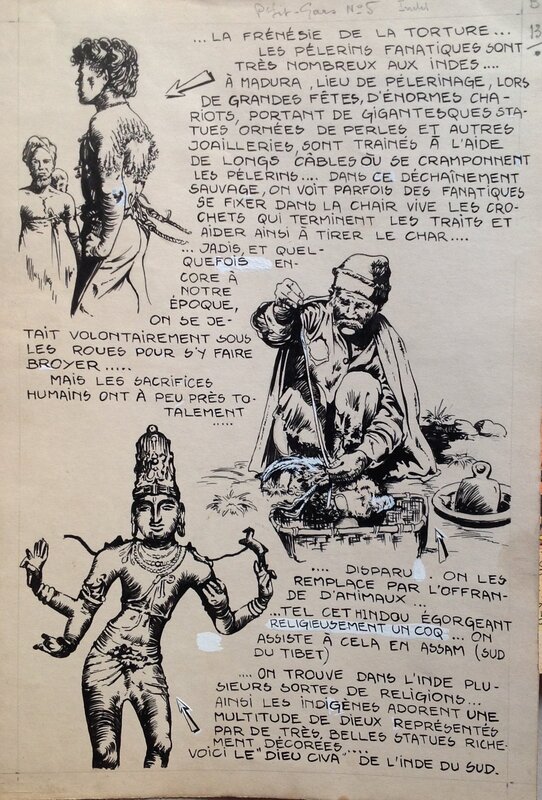 Ptit-Gars N°5
13
... LA FRÉNÉSIE DE LA TORTURE...
LES PÉLERINS FANATIQUES SONT
TRÈS NOMBREUX AUX INDES....
À MADURA, LIEU DE PÉLERINAGE, LORS
DE GRANDES FÊTES, D'ÉNORMES CHA-
RIOTS, PORTANT DE GIGANTESQUES STA-
TUES ORNÉES DE PERLES ET AUTRES
JOAILLERIES, SONT TRAINÉS À L'AIDE
DE LONGS CÂBLES OÙ SE CRAMPONNENT
LES PÉLERINS.... DANS CE DÉCHAÎNEMENT
SAUVAGE, ON VOIT PARFOIS DES FANATIQUES
SE FIXER DANS LA CHAIR VIVE LES CRO-
CHETS QUI TERMINENT LES TRAITS ET
AIDER AINSI À TIRER LE CHAR....
... JADIS, ET QUEL-
QUEFOIS EN-
CORE À
NOTRE
ÉPOQUE,
ON SE JE-
TAIT VOLONTAIREMENT SOUS
LES ROUES POUR S'Y FAIRE
BROYER .....
MAIS LES SACRIFICES
HUMAINS ONT À PEU PRÈS TO-
TALEMENT
.....
.... DISPARU . ON LES
REMPLACE PAR L'OFFRAN-
DE D'ANIMAUX ...
...TEL CET HINDOU ÉGORGEANT
RELIGIEUSEMENT UN COQ ... ON
ASSISTE À CELA EN ASSAM (SUD
DU TIBET)
.... ON TROUVE DANS L'INDE PLU-
SIEURS SORTES DE RELIGIONS...
AINSI LES INDIGÈNES ADORENT UNE
MULTITUDE DE DIEUX REPRÉSENTÉS
PAR DE TRÈS, BELLES STATUES RICHE-
MENT DÉCORÉES....
VOICI LE "DIEU CIVA" DE L'INDE DU SUD.